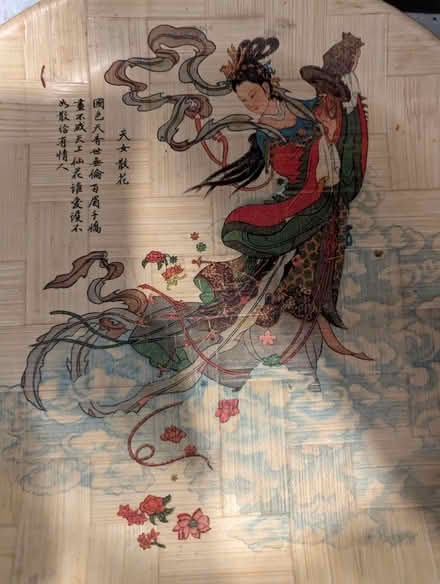 天女散花
國色天香世無倫百眉千嬌
畫不成天上仙花誰愛不
如散給有情人